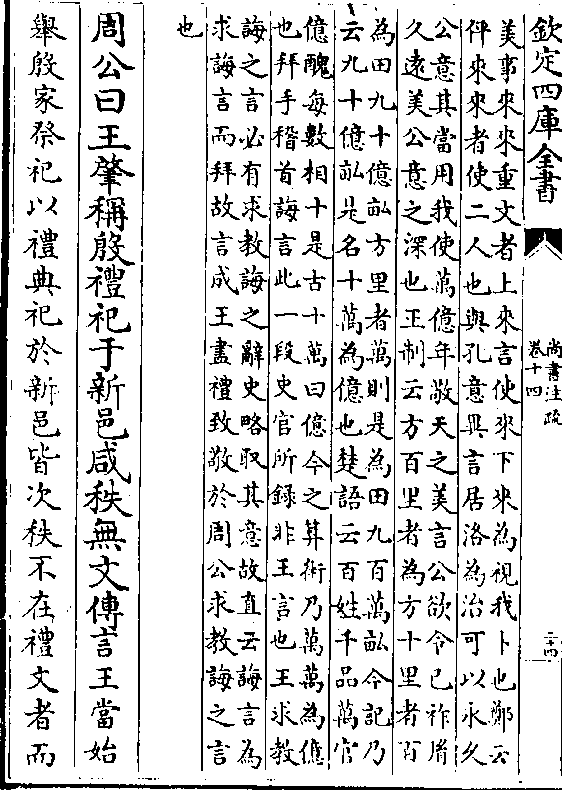 欽定四庫全書
尚書注疏
卷十四
二十四
美事來來重文者上來言使來下來為視我卜也鄭云
伻來來者使二人也與孔意異言居洛為治可以永久
公意其當用我使萬億年敬天之美言公欲令已祚胤
久遠美公意之深也王制云方百里者為方十里者百
為田九十億畝方里者萬則是為田九百萬畝今記乃
云九十億畝是名十萬為億也楚語云百姓千品萬官
億醜每數相十是古十萬曰億今之算術乃萬萬為億
也拜手稽首誨言此一段史官所録非王言也王求教
誨之言必有求教誨之辭史略取其意故直云誨言為
求誨言而拜故言成王盡禮致敬於周公求教誨之言
也
周公曰王肇稱殷禮祀于新邑咸秩無文傳言王當始
舉殷家祭祀以禮典祀於新邑皆次秩不在禮文者而